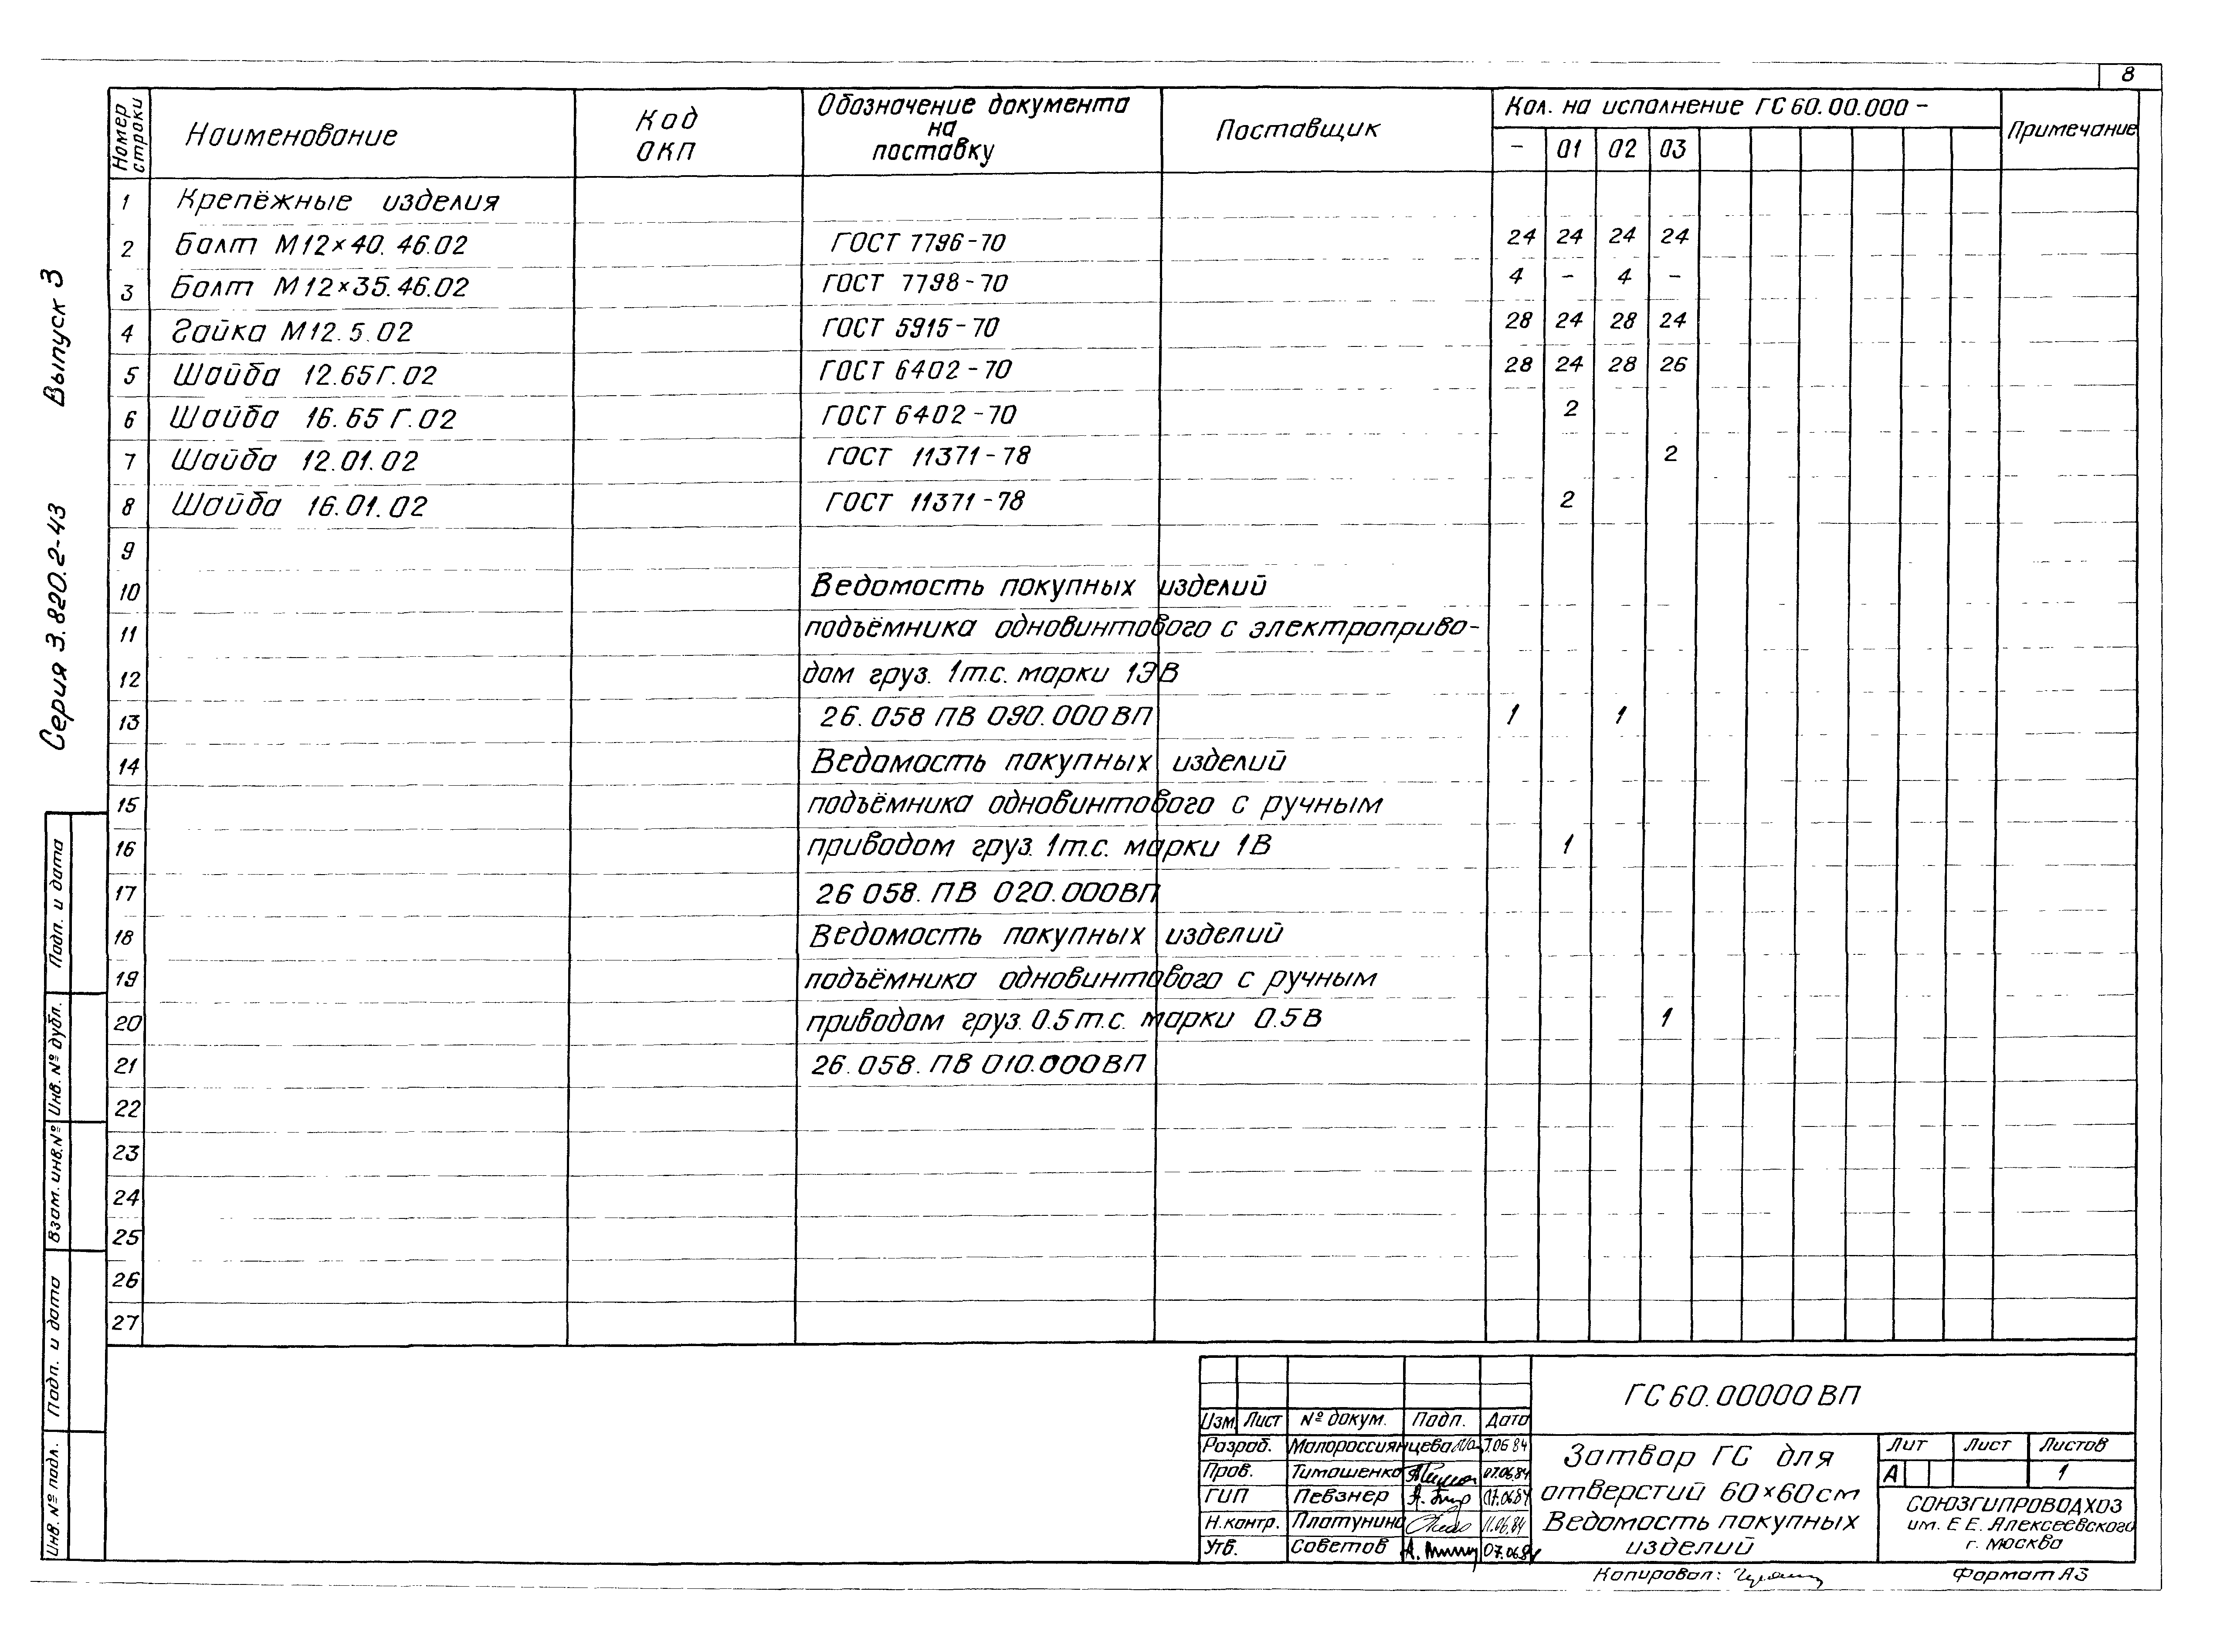 8
Номер строки
Наименование
Код ОКП
Обозначение документа на поставку
Поставщик
Кол. на исполнение ГС 60.00.000 -
Примечание
- 01 02 03
1 Крепёжные изделия
2 Болт М12×40.46.02 ГОСТ 7796-70 24 24 24 24
3 Болт М12×35.46.02 ГОСТ 7798-70 4 - 4 -
4 Гайка М12.5.02 ГОСТ 5915-70 28 24 28 24
5 Шайба 12.65Г.02 ГОСТ 6402-70 28 24 28 26
6 Шайба 16.65Г.02 ГОСТ 6402-70 2
7 Шайба 12.01.02 ГОСТ 11371-78 2
8 Шайба 16.01.02 ГОСТ 11371-78 2
9
10 Ведомость покупных изделий
11 подъёмника одновинтового с электроприво-
12 дом груз. 1т.с. марки 1ЭВ
13 26.058 ПВ 090.000ВП 1 1
14 Ведомость покупных изделий
15 подъёмника одновинтового с ручным
16 приводом груз. 1т.с. марки 1В 1
17 26 058. ПВ 020.000ВП
18 Ведомость покупных изделий
19 подъёмника одновинтового с ручным
20 приводом груз. 0.5т.с. марки 0.5В 1
21 26.058. ПВ 010.000ВП
22
23
24
25
26
27
Серия 3.820.2-43 Выпуск 3
Подп. и дата
Инв. № дубл.
Взам. инв. №
Подп. и дата
Инв. № подл.
ГС 60.00000 ВП
Изм. Лист № докум. Подп. Дата
Разраб. Малороссиянцева 7.06 84
Пров. Тимошенко 07.06.84
ГИП Певзнер 07.06.84
Н.контр. Платунина 11.06.84
Утв. Советов 07.06.84
Затвор ГС для
отверстий 60×60см
Ведомость покупных
изделий
Лит Лист Листов
А 1
СОЮЗГИПРОВОДХОЗ
им. Е Е. Алексеевского
г. Москва
Копировал:
Формат А3